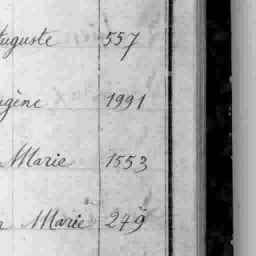 Auguste 557
1991
Marie 1553
Marie 249